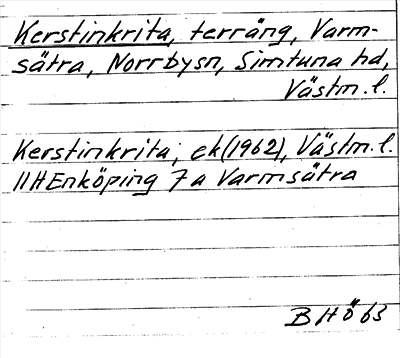 Kerstinkrita, terräng, Varm-
sätra, Norrbysn, Simtuna hd,
Västm. l.
Kerstinkrita, ek(1962), Västm. l.
11H Enköping 7a Varmsätra
B Hö 63